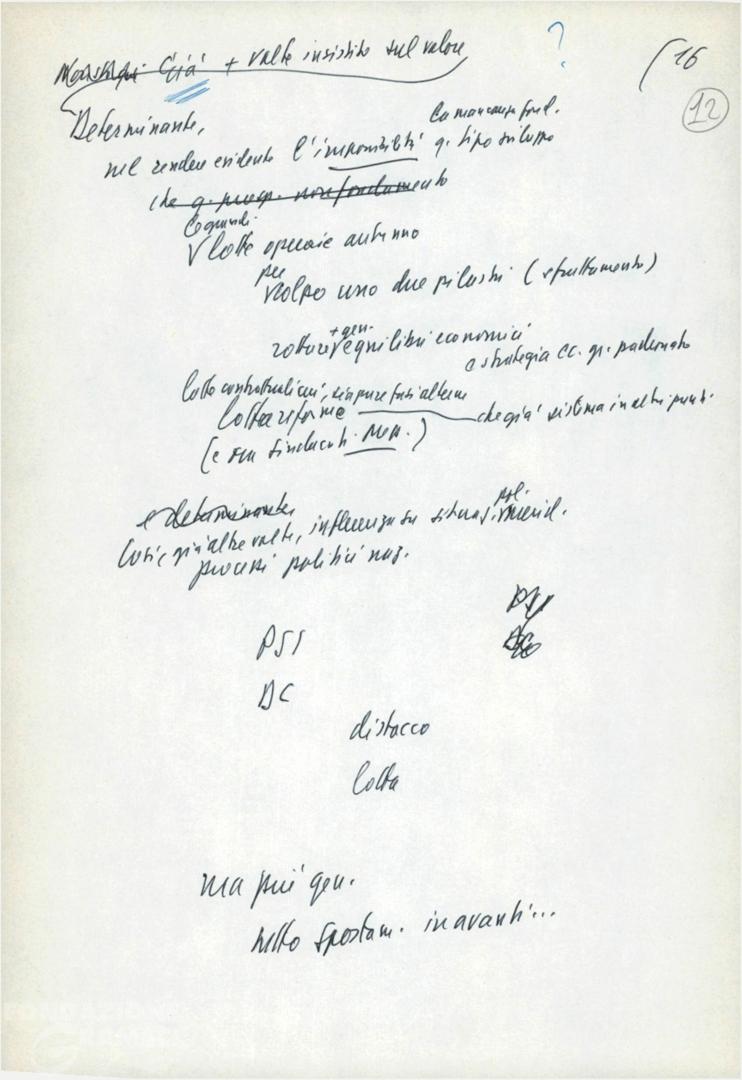 ?
(16
12
Già + volte insistito sul valore
Determinante,
la mancanza fond.
nel rendere evidente l'impossibilità q. tipo sviluppo
che q. non fondamento
Le grandi
lotte operaie autunno
per
colpo uno due pilastri (sfruttamento)
+ gen.
rotture equilibri economici
e strategia ec. gr. padronato
lotte contrattuali, sia pure fasi alterne
lotta riforme che già sistema in altri punti
(e ora sindacati. Men.)
e determinante
Così, già altre volte, influenza su situaz. merid.
pol.
processi politici naz.
PSI
DC
distacco
lotta
ma più gen.
netto spostam. in avanti...
FONDAZIONE